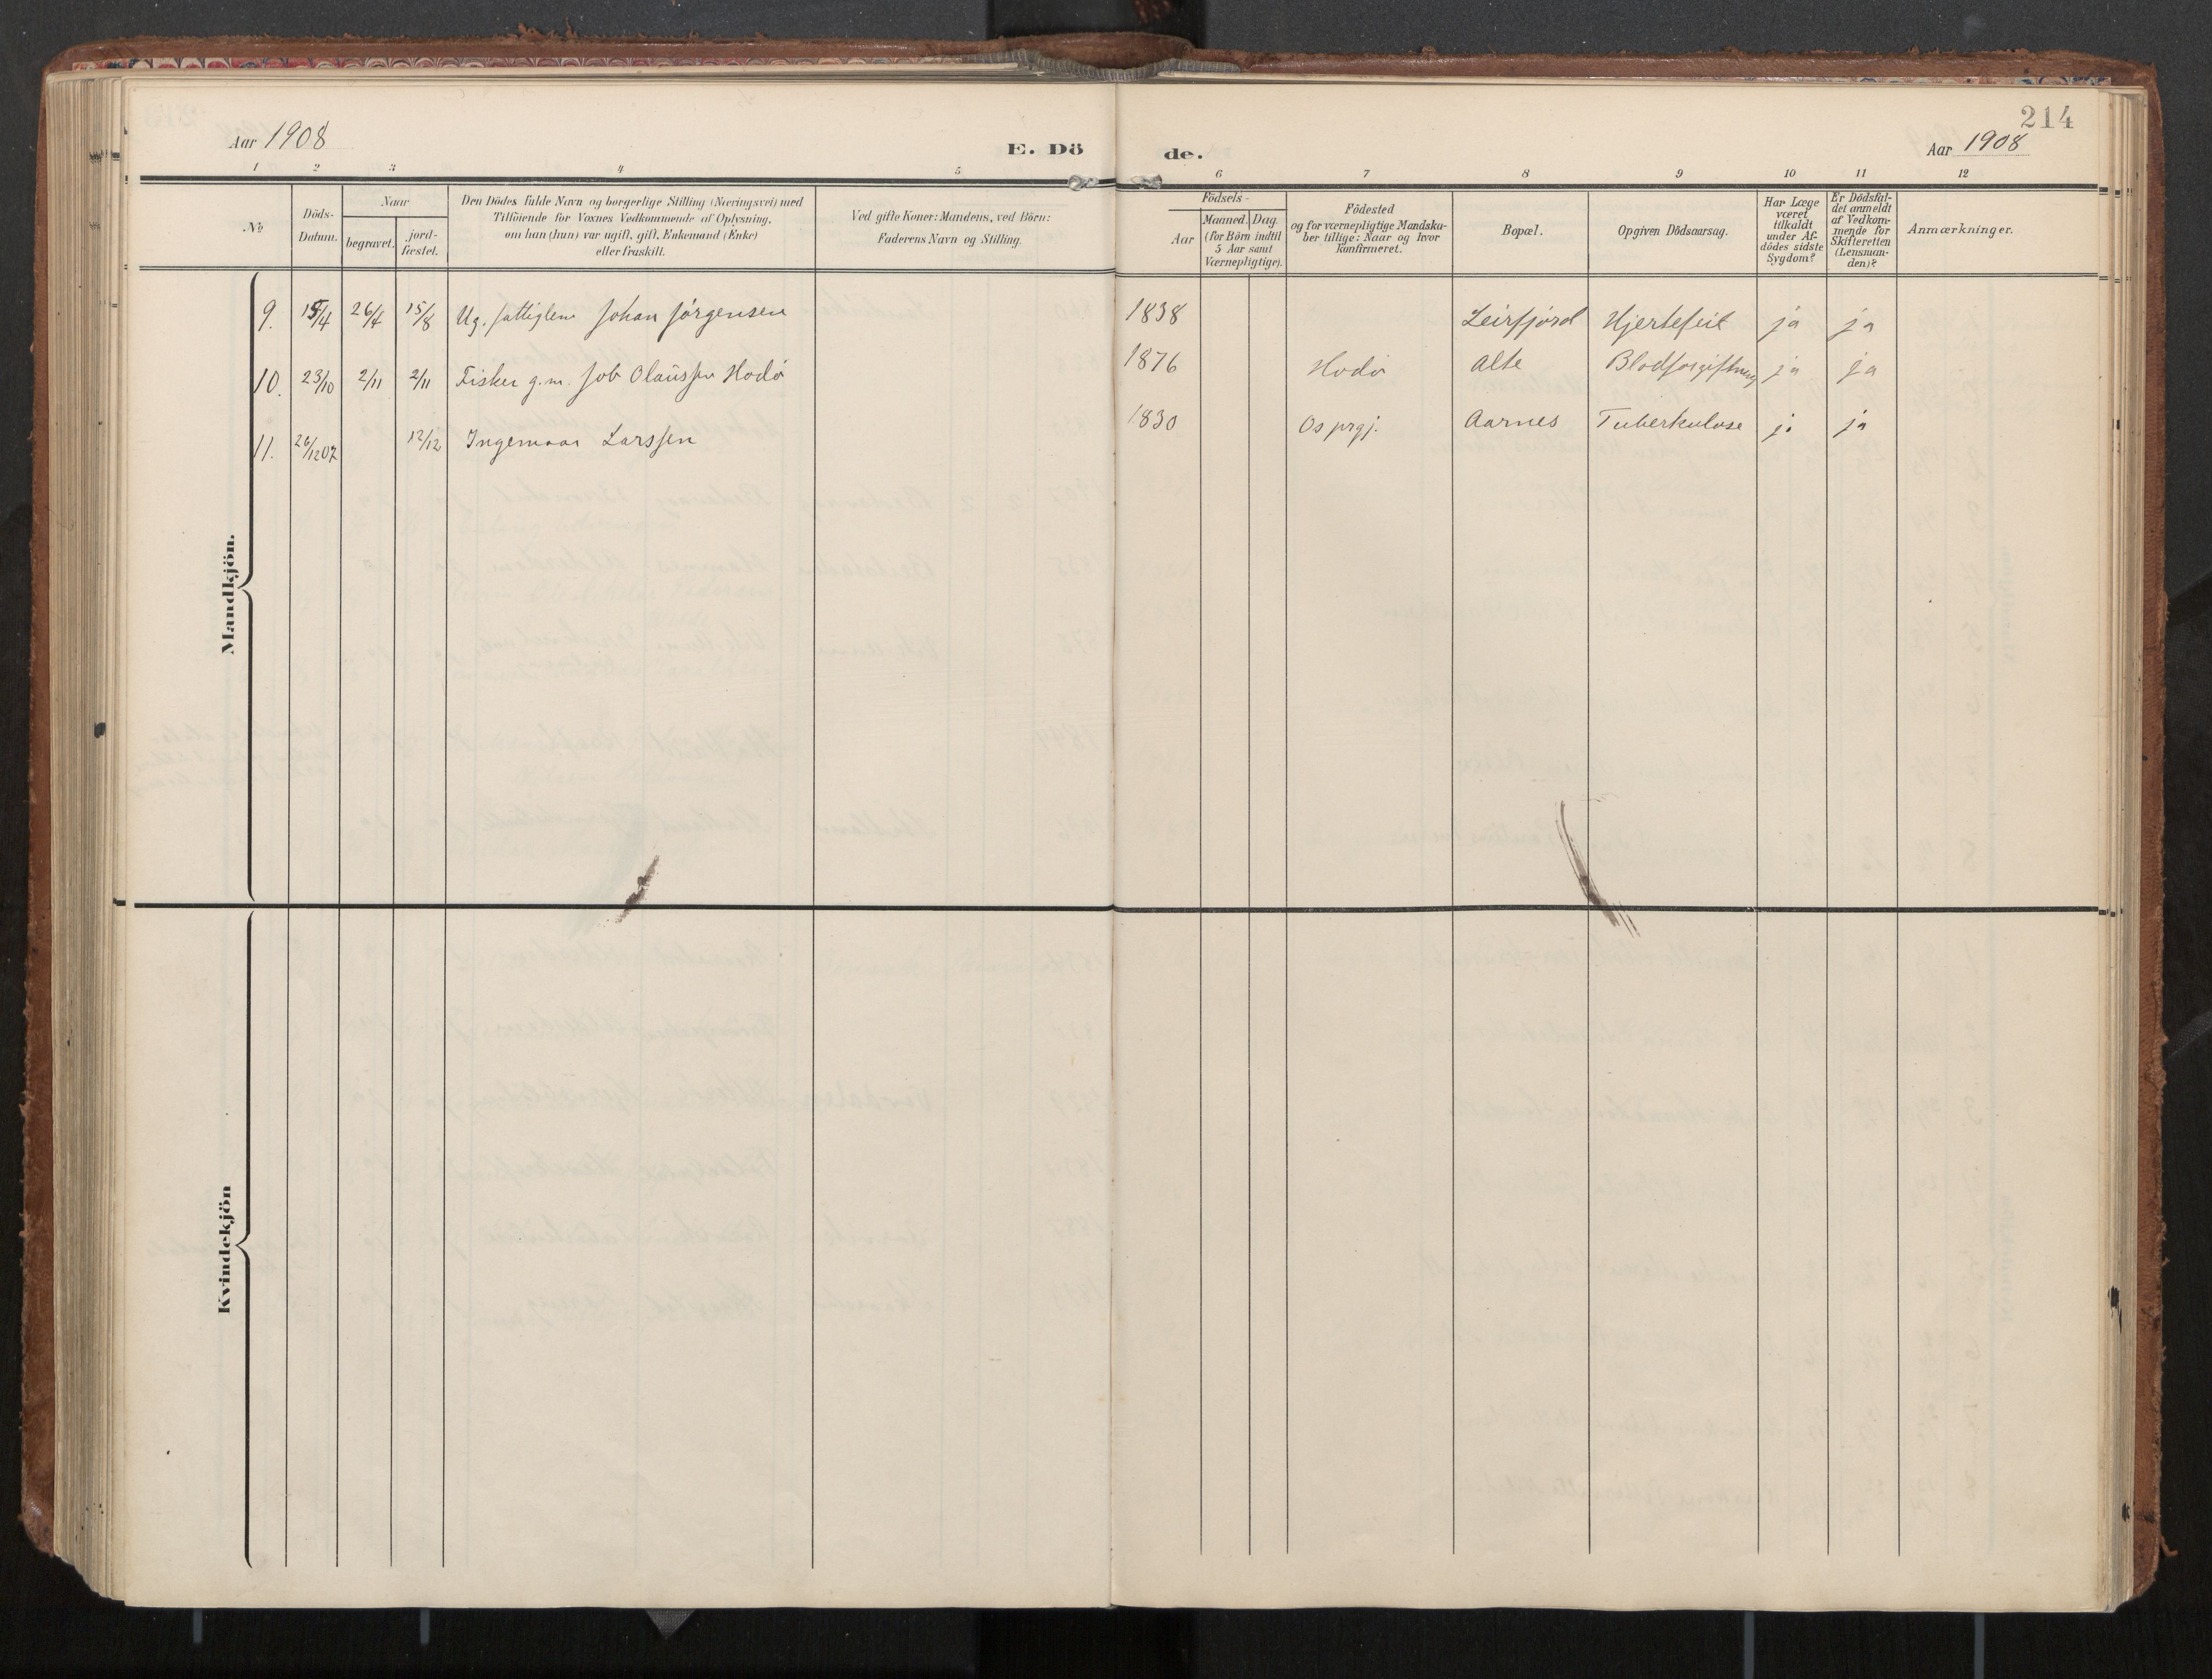 214
Aar 1908
E. Dö
de.
Aar 1908
1 2 3 4 5 6 7 8 9 10 11 12
No
Döds-
Datum.
Naar
begravet.
jord-
fæstet.
Den Dödes fulde Navn og borgerlige Stilling (Næringsvei) med
Tilföiende for Voxnes Vedkommende af Oplysning,
om han (hun) var ugift, gift, Enkemand (Enke)
eller fraskilt.
Ved gifte Koner: Mandens, ved Börn:
Faderens Navn og Stilling.
Födsels-
Aar
Maaned. Dag.
(for Börn indtil
5 Aar samt
Værnepligtige).
Födested
og for værnepligtige Mandska-
ber tillige: Naar og hvor
konfirmeret.
Bopæl.
Opgiven Dödsaarsag.
Har Læge
været
tilkaldt
under Af-
dödes sidste
Sygdom?
Er Dödsfal-
det anmeldt
af Vedkom-
mende for
Skifteretten
(Lensman-
den)?
Anmærkninger.
Mandkjön.
9. 15/4 26/4 15/8 Ug. fattiglem Johan Jörgensen 1838 Leirfjord Hjertefeil ja ja
10. 23/10 2/11 2/11 Fisker g.m. Job Olaüssen Hodö 1876 Hodö Alte Blodforgiftning ja ja
11. 26/12 07 12/12 Ingemaar Larssen 1830 Os prgj. Aarnes Tuberkulose ja ja
Kvindekjön